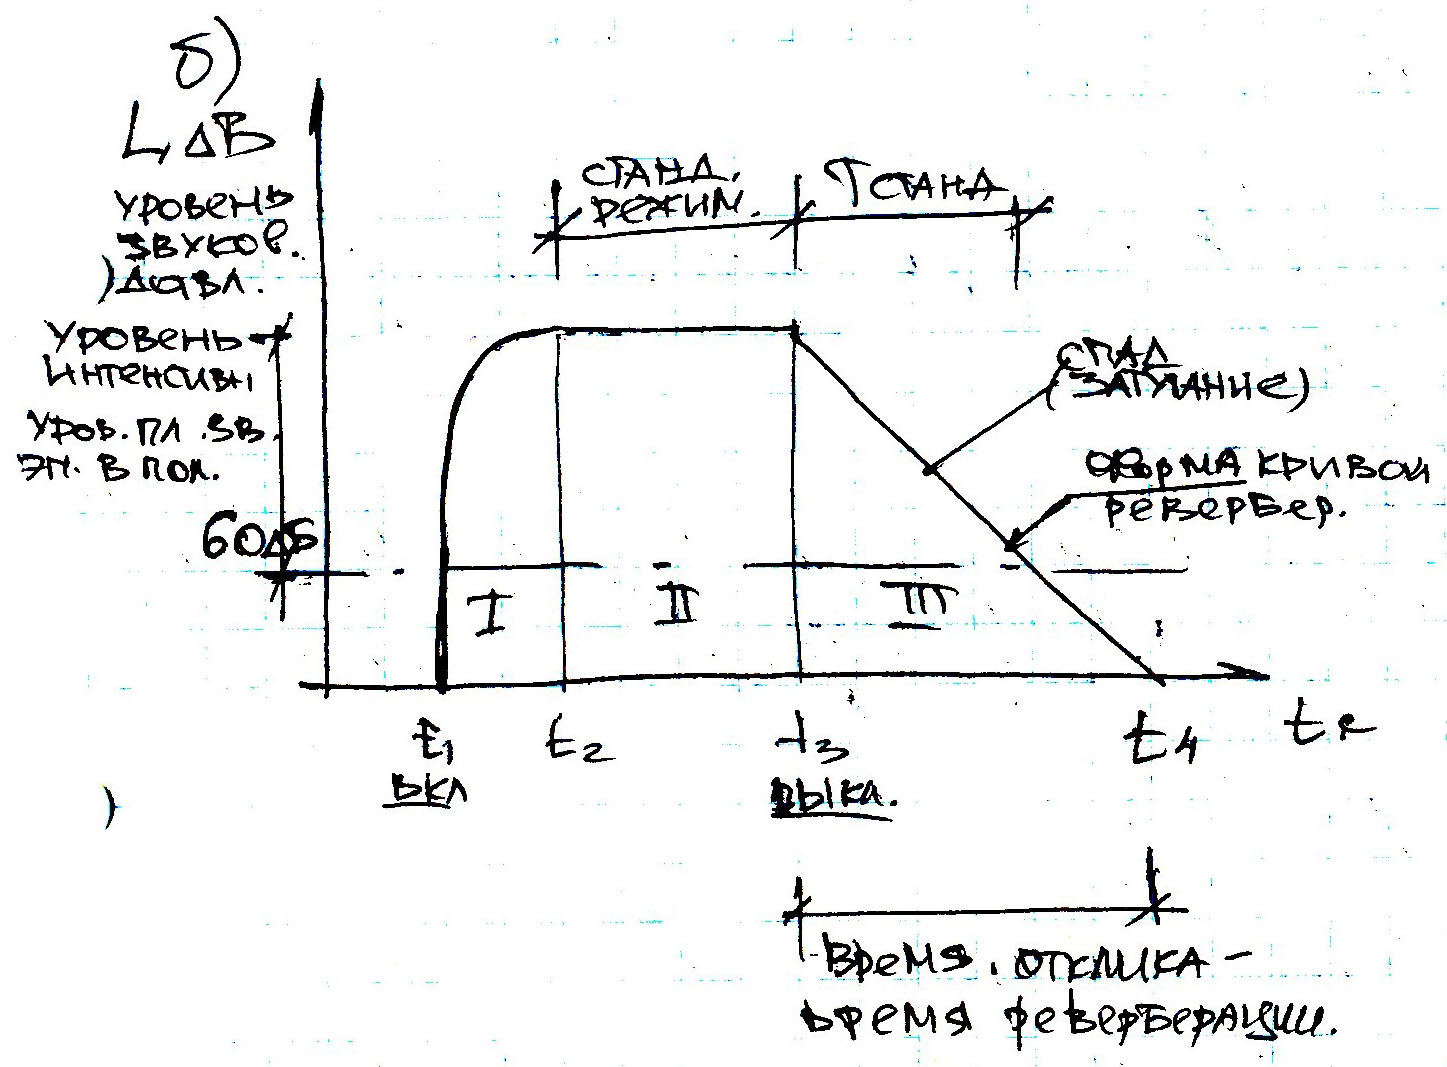 б)
L, дБ
УРОВЕНЬ
ЗВУКОВ.
ДАВЛ.
УРОВЕНЬ
ИНТЕНСИВН
УРОВ. ПЛ. ЗВ.
ЭН. В ПОМ.
60дБ
СТАНД.
РЕЖИМ.
T СТАНД
СПАД
(ЗАТУХАНИЕ)
ФОРМА КРИВОЙ
РЕВЕРБЕР.
I
II
III
t1
ВКЛ
t2
t3
ВЫКЛ.
t4
t с
ВРЕМЯ. ОТКЛИКА –
ВРЕМЯ РЕВЕРБЕРАЦИИ.